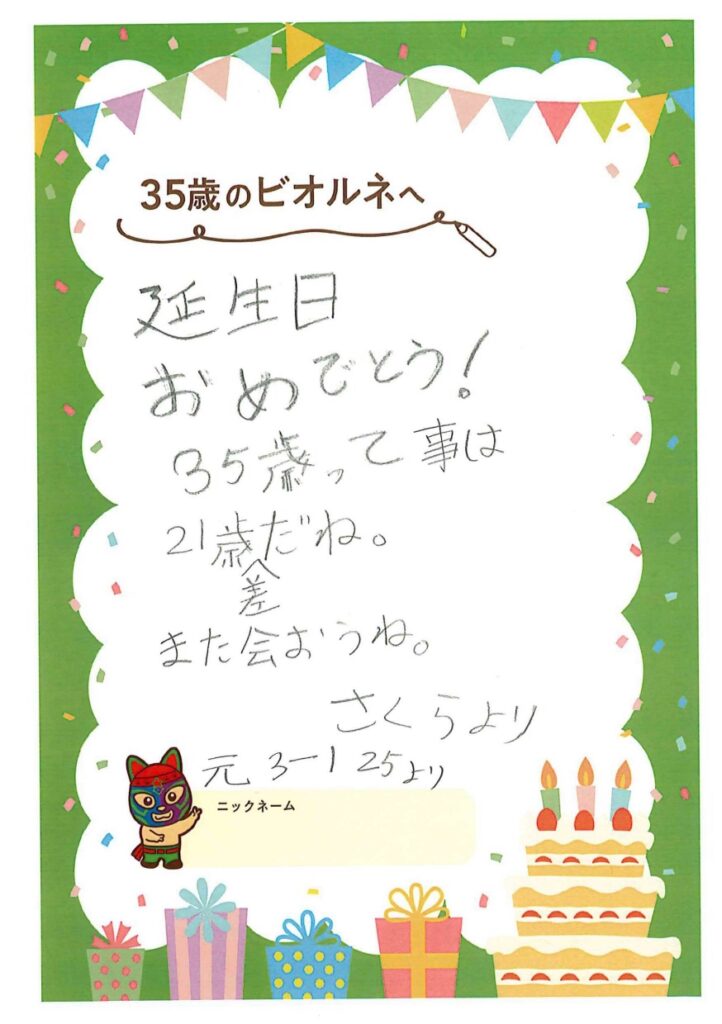 35歳のビオルネへ
延生日
おめでとう!
35歳って事は
21歳差だね。
また会おうね。
さくらより
元3-1 25より
ニックネーム